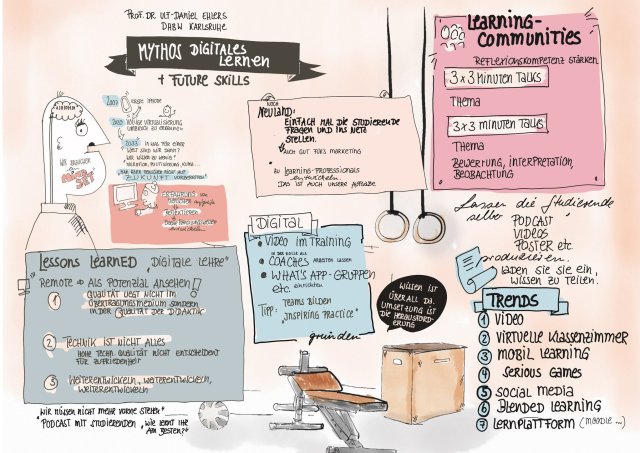 Prof. Dr. Ulf-Daniel Ehlers
DHBW Karlsruhe
MYTHOS DIGITALES
LERNEN
+ FUTURE SKILLS
2007
ERSTE
2020 VÖLLIGE VIRTUALISIERUNG
2023
WELT SIND WIR DANN?
WIR WISSEN ZU WENIG!
ZUKUNFT
WIR BRAUCHEN
ERFAHRUNG
REFLEKTIEREN
NOCH
NEULAND:
EINFACH MAL DIE STUDIERENDE
FRAGEN UND INS NETZ
STELLEN.
AUCH GUT FÜRS MARKETING
ZU LEARNING-PROFESSIONALS
entwickeln
DAS IST AUCH UNSERE AUFGABE.
LEARNING-
COMMUNITIES
REFLEXIONSKOMPETENZ STÄRKEN
3x3 MINUTEN TALKS
THEMA
3x3 MINUTEN TALKS
THEMA
BEWERTUNG, INTERPRETATION,
BEOBACHTUNG
Lassen die Studierende
selbst PODCAST
VIDEOS
POSTER etc.
produzieren.
LADEN SIE SIE EIN,
WISSEN ZU TEILEN.
DIGITAL
VIDEO IM TRAINING
COACHES ARBEITEN LASSEN
WHAT'S APP-GRUPPEN
etc. einrichten
TIPP: TEAMS BILDEN
"INSPIRING PRACTICE"
gründen
WISSEN IST
ÜBERALL DA.
UMSETZUNG IST
DIE HERAUSFORD-
ERUNG
LESSONS LEARNED "DIGITALE LEHRE"
REMOTE → ALS POTENZIAL ANSEHEN!
1 QUALITÄT LIEGT NICHT IM
ÜBERTRAGUNGSMEDIUM SONDERN
IN DER QUALITÄT DER DIDAKTIK
2 TECHNIK IST NICHT ALLES
HOHE TECHN. QUALITÄT NICHT ENTSCHEIDENT
FÜR ZUFRIEDENHEIT
3 WEITERENTWICKELN, WEITERENTWICKELN,
WEITERENTWICKELN
"WIR MÜSSEN NICHT MEHR VORNE STEHEN"
PODCAST MIT STUDIERENDEN "WIE LERNT IHR
AM BESTEN?"
TRENDS
1 VIDEO
2 VIRTUELLE KLASSENZIMMER
3 MOBIL LEARNING
4 SERIOUS GAMES
5 SOCIAL MEDIA
6 BLENDED LEARNING
7 LERNPLATTFORM (MOODLE ...)